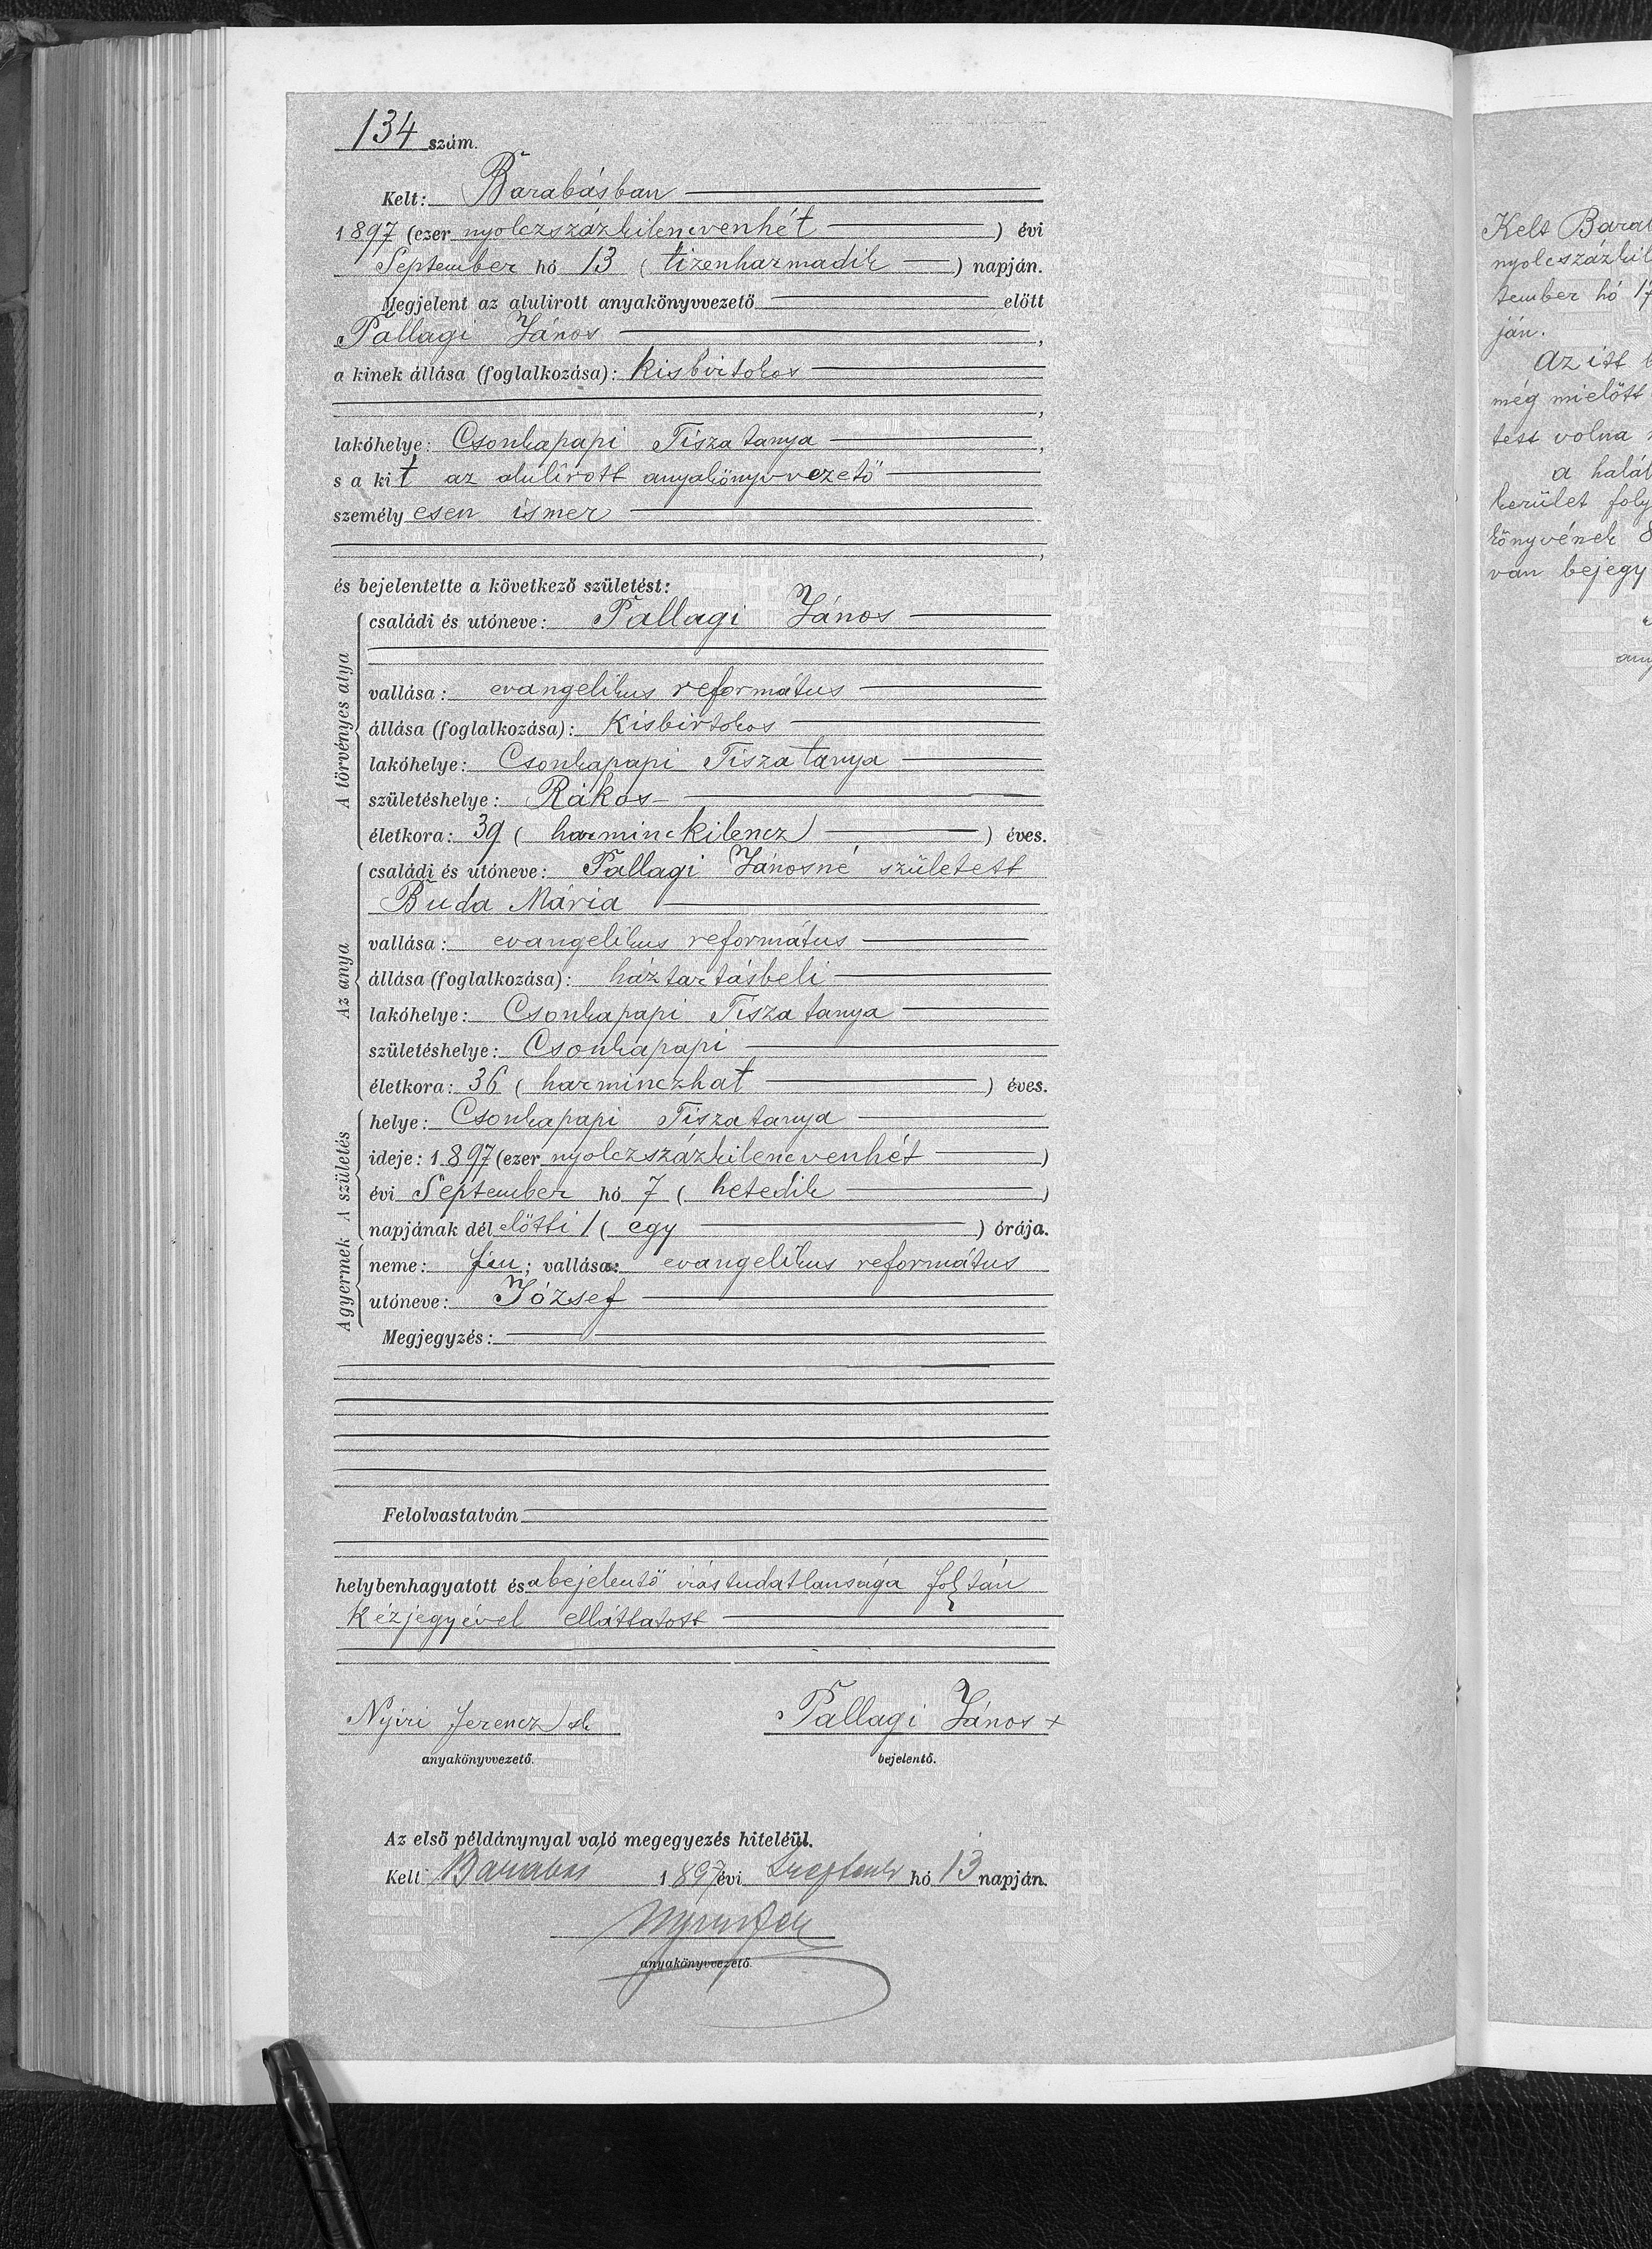 134 szám.
Kelt: Barabásban
1897 (ezer nyolczszázkilenczvenhét) évi
September hó 13 (tizenharmadik) napján.
Megjelent az alulirott anyakönyvvezető előtt
Pallagi János,
a kinek állása (foglalkozása): kisbirtokos
,
lakóhelye: Csonkapapi Tisza tanya,
s a kit az alulírott anyakönyvvezető
személyesen ismer
,
és bejelentette a következő születést:
A törvényes atya
családi és utóneve: Pallagi János
vallása: evangelikus református
állása (foglalkozása): Kisbirtokos
lakóhelye: Csonkapapi Tisza tanya
születéshelye: Rákos
életkora: 39 (harminckilencz) éves.
Az anya
családi és utóneve: Pallagi Jánosné született
Buda Mária
vallása: evangelikus református
állása (foglalkozása): háztartásbeli
lakóhelye: Csonkapapi Tisza tanya
születéshelye: Csonkapapi
életkora: 36 (harminczhat) éves.
A születés
helye: Csonkapapi Tisza tanya
ideje: 1897 (ezer nyolczszázkilenczvenhét)
évi September hó 7 (hetedik)
napjának dél előtti 1 (egy) órája.
A gyermek
neme: fiu; vallása: evangelikus református
utóneve: József
Megjegyzés:
Felolvastatván
helybenhagyatott és a bejelentő irástudatlansága foltán
kézjegyével elláttatott
Nyiri Ferencz sk Pallagi János x
anyakönyvvezető. bejelentő.
Az első példánynyal való megegyezés hiteléül.
Kelt Barabás 1897 évi hó 13 napján.
anyakönyvvezető.
Kelt Barab
nyolcszázkil
tember hó 17
ján.
Az itt
még mielőtt
tett volna
a halál
kerület foly
könyvének 8
van bejegy
any